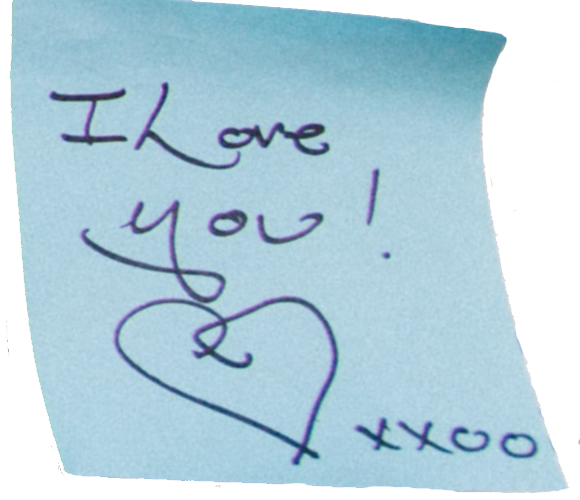 I Love
you!
xxoo